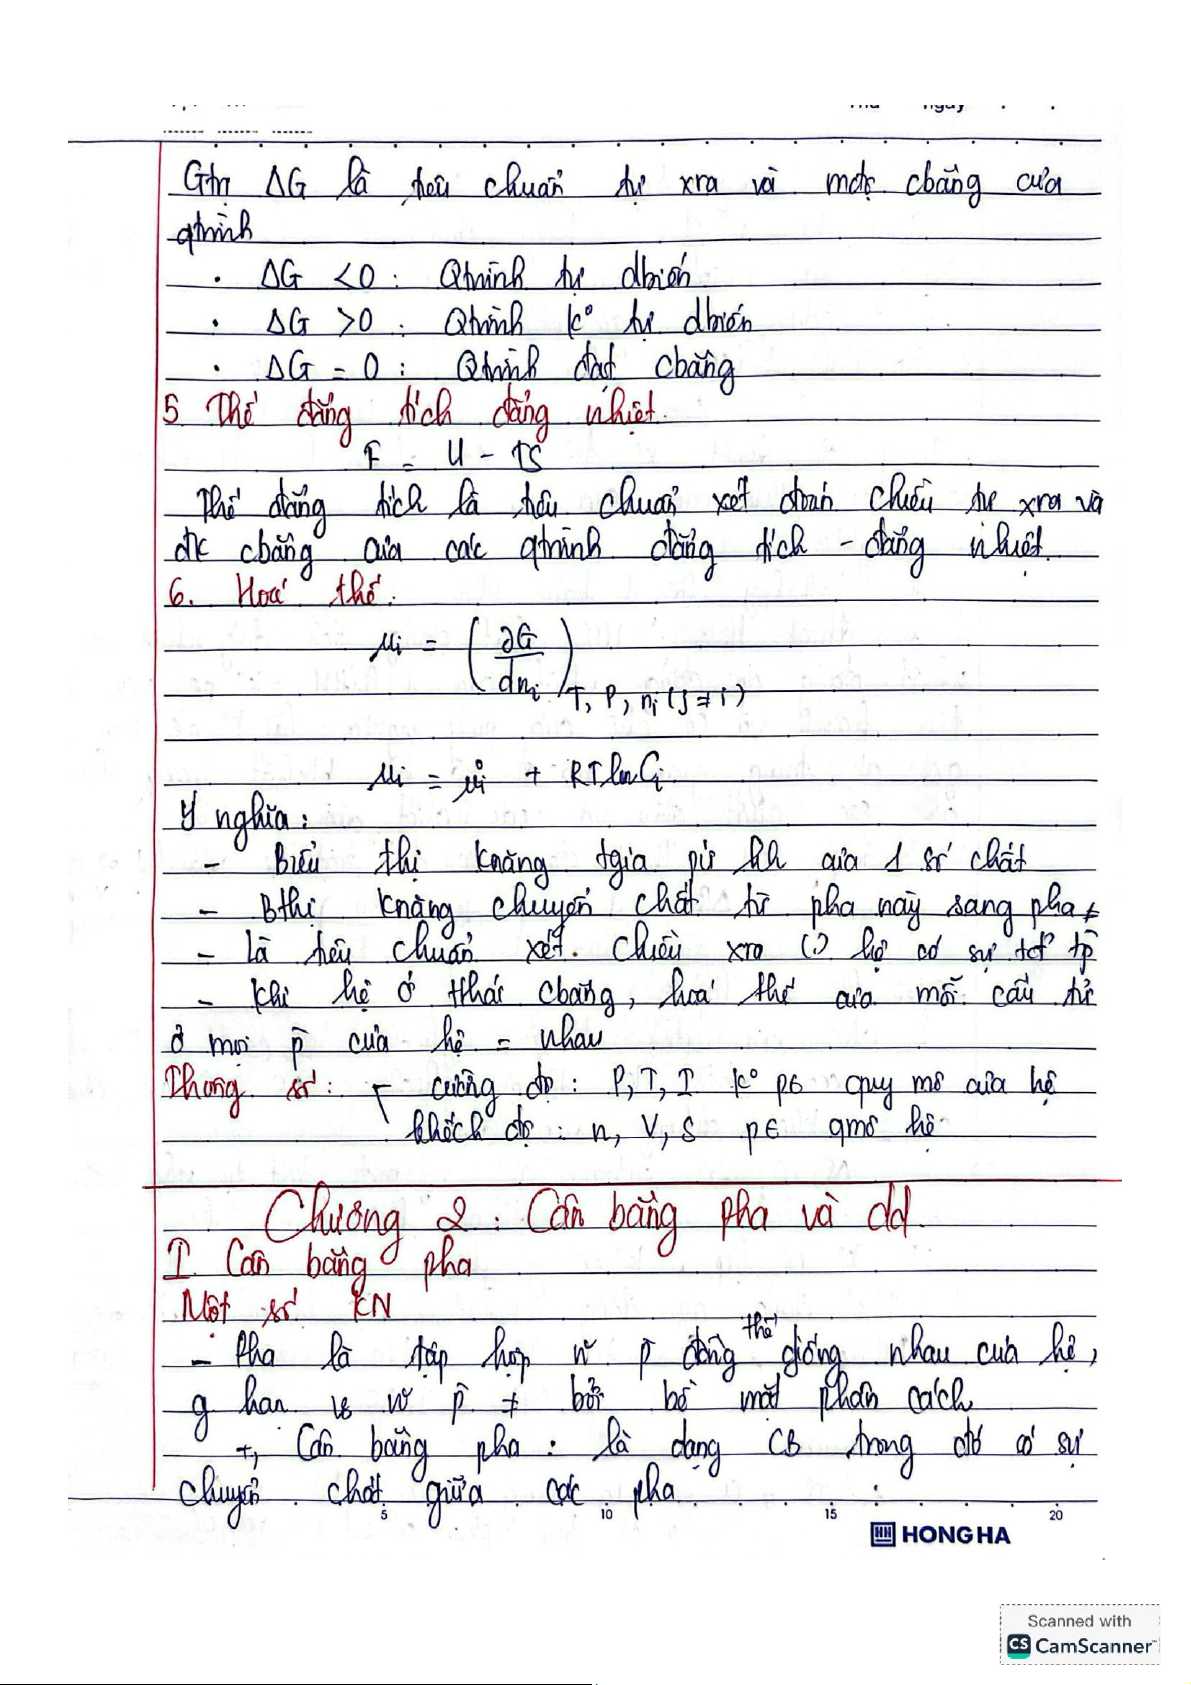 Thứ ngày
Gtrị ΔG là tiêu chuẩn tự xra và mức cbằng của
qtrình
. ΔG < 0 : Qtrình tự dbiến
. ΔG > 0 : Qtrình k° tự dbiến
. ΔG = 0 : Qtrình đạt cbằng
5 Thế đẳng tích đẳng nhiệt.
F = U - TS
Thế đẳng tích là tiêu chuẩn xét đoán chiều tự xra và
đk cbằng của các qtrình đẳng tích - đẳng nhiệt.
6. Hoá thế.
μi = (∂G/dni) T, P, nj (j≠i)
μi = μ°i + RTlnCi
Ý nghĩa:
- Biểu thị knăng tgia pứ hh của 1 số chất
- Bthị knăng chuyển chất từ pha này sang pha ≠
- Là tiêu chuẩn xét. chiều xra (.) hệ có sự tđ tp
- Khi hệ ở thái cbằng, hoá thế của mỗi cấu tử
ở mọi p̄ của hệ = nhau
Thông số: cường độ : P, T, I k° p∈ quy mô của hệ
khếch độ : n, V, S p∈ qmô hệ
Chương 2 : Cân bằng pha và dd.
I. Cân bằng pha
Một số KN
- Pha là tập hợp n~ p̄ đồng thể giống nhau của hệ,
g hạn vs n~ p̄ ≠ bởi bề mặt phân cách
+, Cân bằng pha : là dạng CB trong đó có sự
chuyển chất giữa các pha
5 10 15 20
HONG HA
Scanned with
CS CamScanner